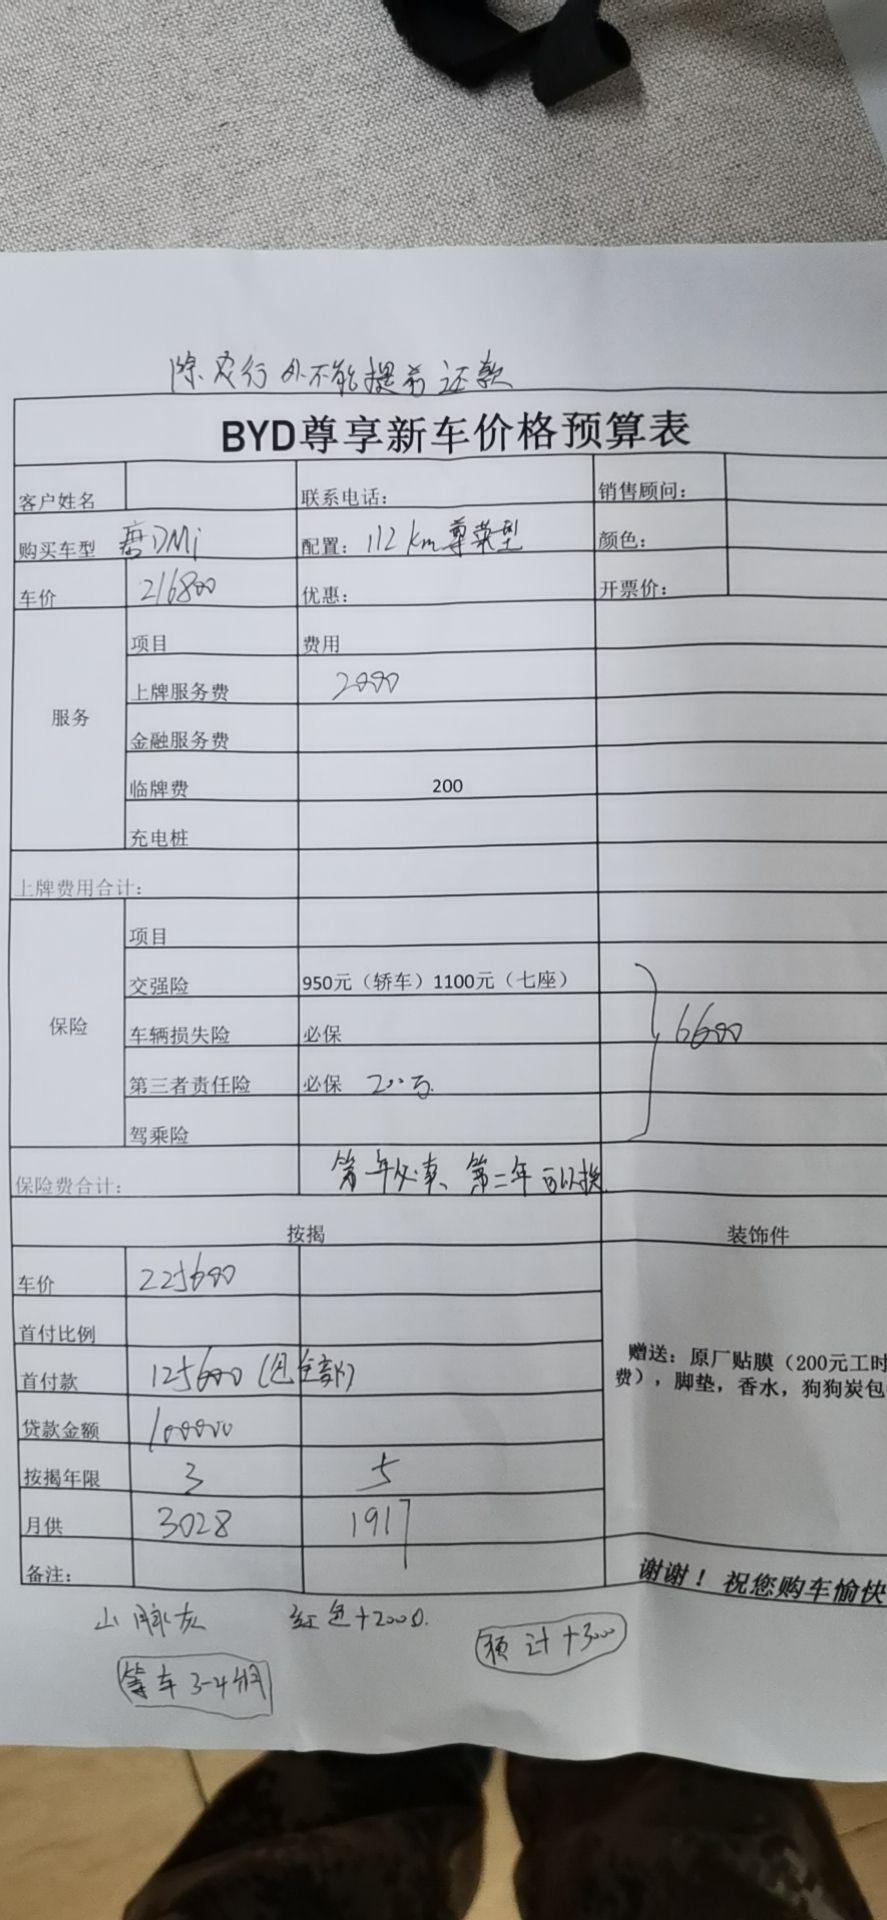 除农行外不能提前还款
BYD尊享新车价格预算表
客户姓名 联系电话: 销售顾问:
购买车型 唐DMi 配置: 112km尊荣型 颜色:
车价 216800 优惠: 开票价:
服务
项目 费用
上牌服务费 2000
金融服务费
临牌费 200
充电桩
上牌费用合计:
保险
项目
交强险 950元（轿车）1100元（七座）
车辆损失险 必保
第三者责任险 必保 200万
6600
驾乘险
保险费合计: 第一年必保、第二年可以换
按揭 装饰件
车价 225600
首付比例
首付款 125600
贷款金额 100000
按揭年限 3 5
月供 3028 1917
备注:
赠送：原厂贴膜（200元工时
费），脚垫，香水，狗狗炭包
谢谢！祝您购车愉快
山脉灰 红色+2000.
预计+3000
等车3-4个月